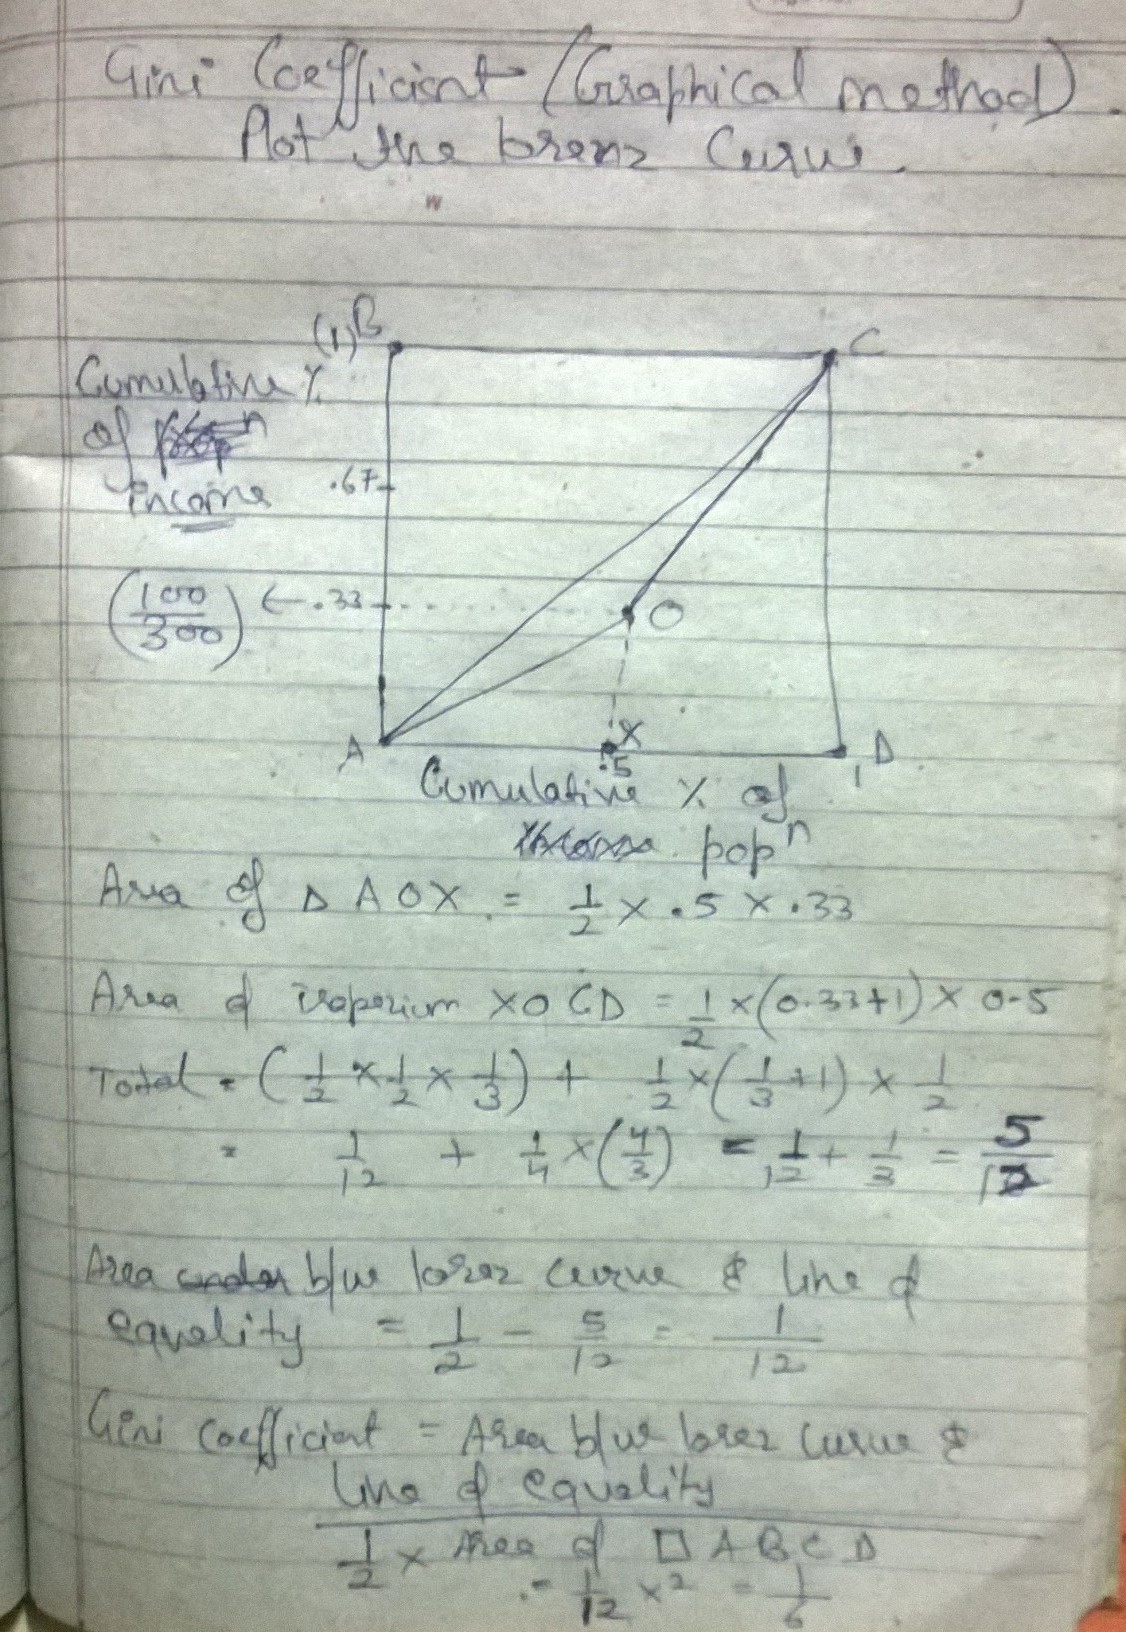 Gini Coefficient (Graphical method).
Plot the lorenz Curve.
(1) B
C
Cumulative %
of
income
.67
(100/300) ← .33
O
A
X
.5
D
1
Cumulative % of
popⁿ
Area of Δ AOX = 1/2 × .5 × .33
Area of trapezium XOCD = 1/2 × (0.33+1) × 0.5
Total = (1/2 × 1/2 × 1/3) + 1/2 × (1/3 + 1) × 1/2
= 1/12 + 1/4 × (4/3) = 1/12 + 1/3 = 5/12
Area under b/w lorez curve & line of
equality = 1/2 - 5/12 = 1/12
Gini coefficient = Area b/w lorez curve &
line of equality
1/2 × Area of □ ABCD
= 1/12 × 2 = 1/6